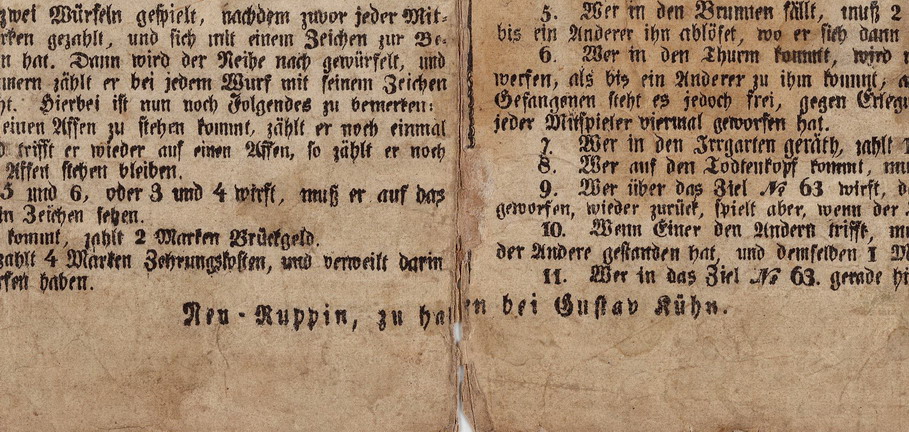 zwei Würfeln gespielt, nachdem zuvor jeder Mit-
rken gezahlt, und sich mit einem Zeichen zur Be-
n hat. Dann wird der Reihe nach gewürfelt, und
mern zählt er bei jedem Wurf mit seinem Zeichen
ht. Hierbei ist nun noch Folgendes zu bemerken:
einen Affen zu stehen kommt, zählt er noch einmal
d trifft er wieder auf einen Affen, so zählt er noch
Affen stehen bleiben.
5 und 6, oder 3 und 4 wirft, muß er auf das
in Zeichen setzen.
kommt, zahlt 2 Marken Brückgeld.
zahlt 4 Marken Zehrungskosten, und verweilt darin
rfen haben.
5. Wer in den Brunnen fällt, muß 2
bis ein Anderer ihn ablöset, wo er sich dann
6. Wer in den Thurm kommt, wird
werfen, als bis ein Anderer zu ihm kommt; a
Gefangenen steht es jedoch frei, gegen Erlegu
jeder Mitspieler viermal geworfen hat.
7. Wer in den Irrgarten geräth, zahlt
8. Wer auf den Todtenkopf kommt, mu
9. Wer über das Ziel № 63 wirft, d
geworfen, wieder zurück, spielt aber, wenn der
10. Wenn Einer den Andern trifft, mu
der Andere gestanden hat, und demselben 1 M
11. Wer in das Ziel № 63. gerade hi
Neu-Ruppin, zu haben bei Gustav Kühn.